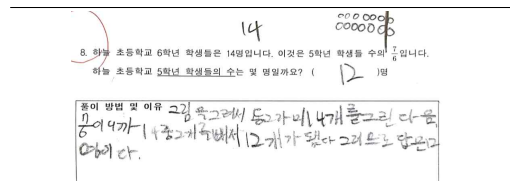 14
8. 하늘 초등학교 6학년 학생들은 14명입니다. 이것은 5학년 학생들 수의 7/6입니다.
하늘 초등학교 5학년 학생들의 수는 몇 명일까요? ( 12 )명
풀이 방법 및 이유 그림을 그려서 동그라미 14개를 그린 다음
7/6이니까 14중 2개를 빼서 12개가 됐다 그러므로 답은 12
명이다.